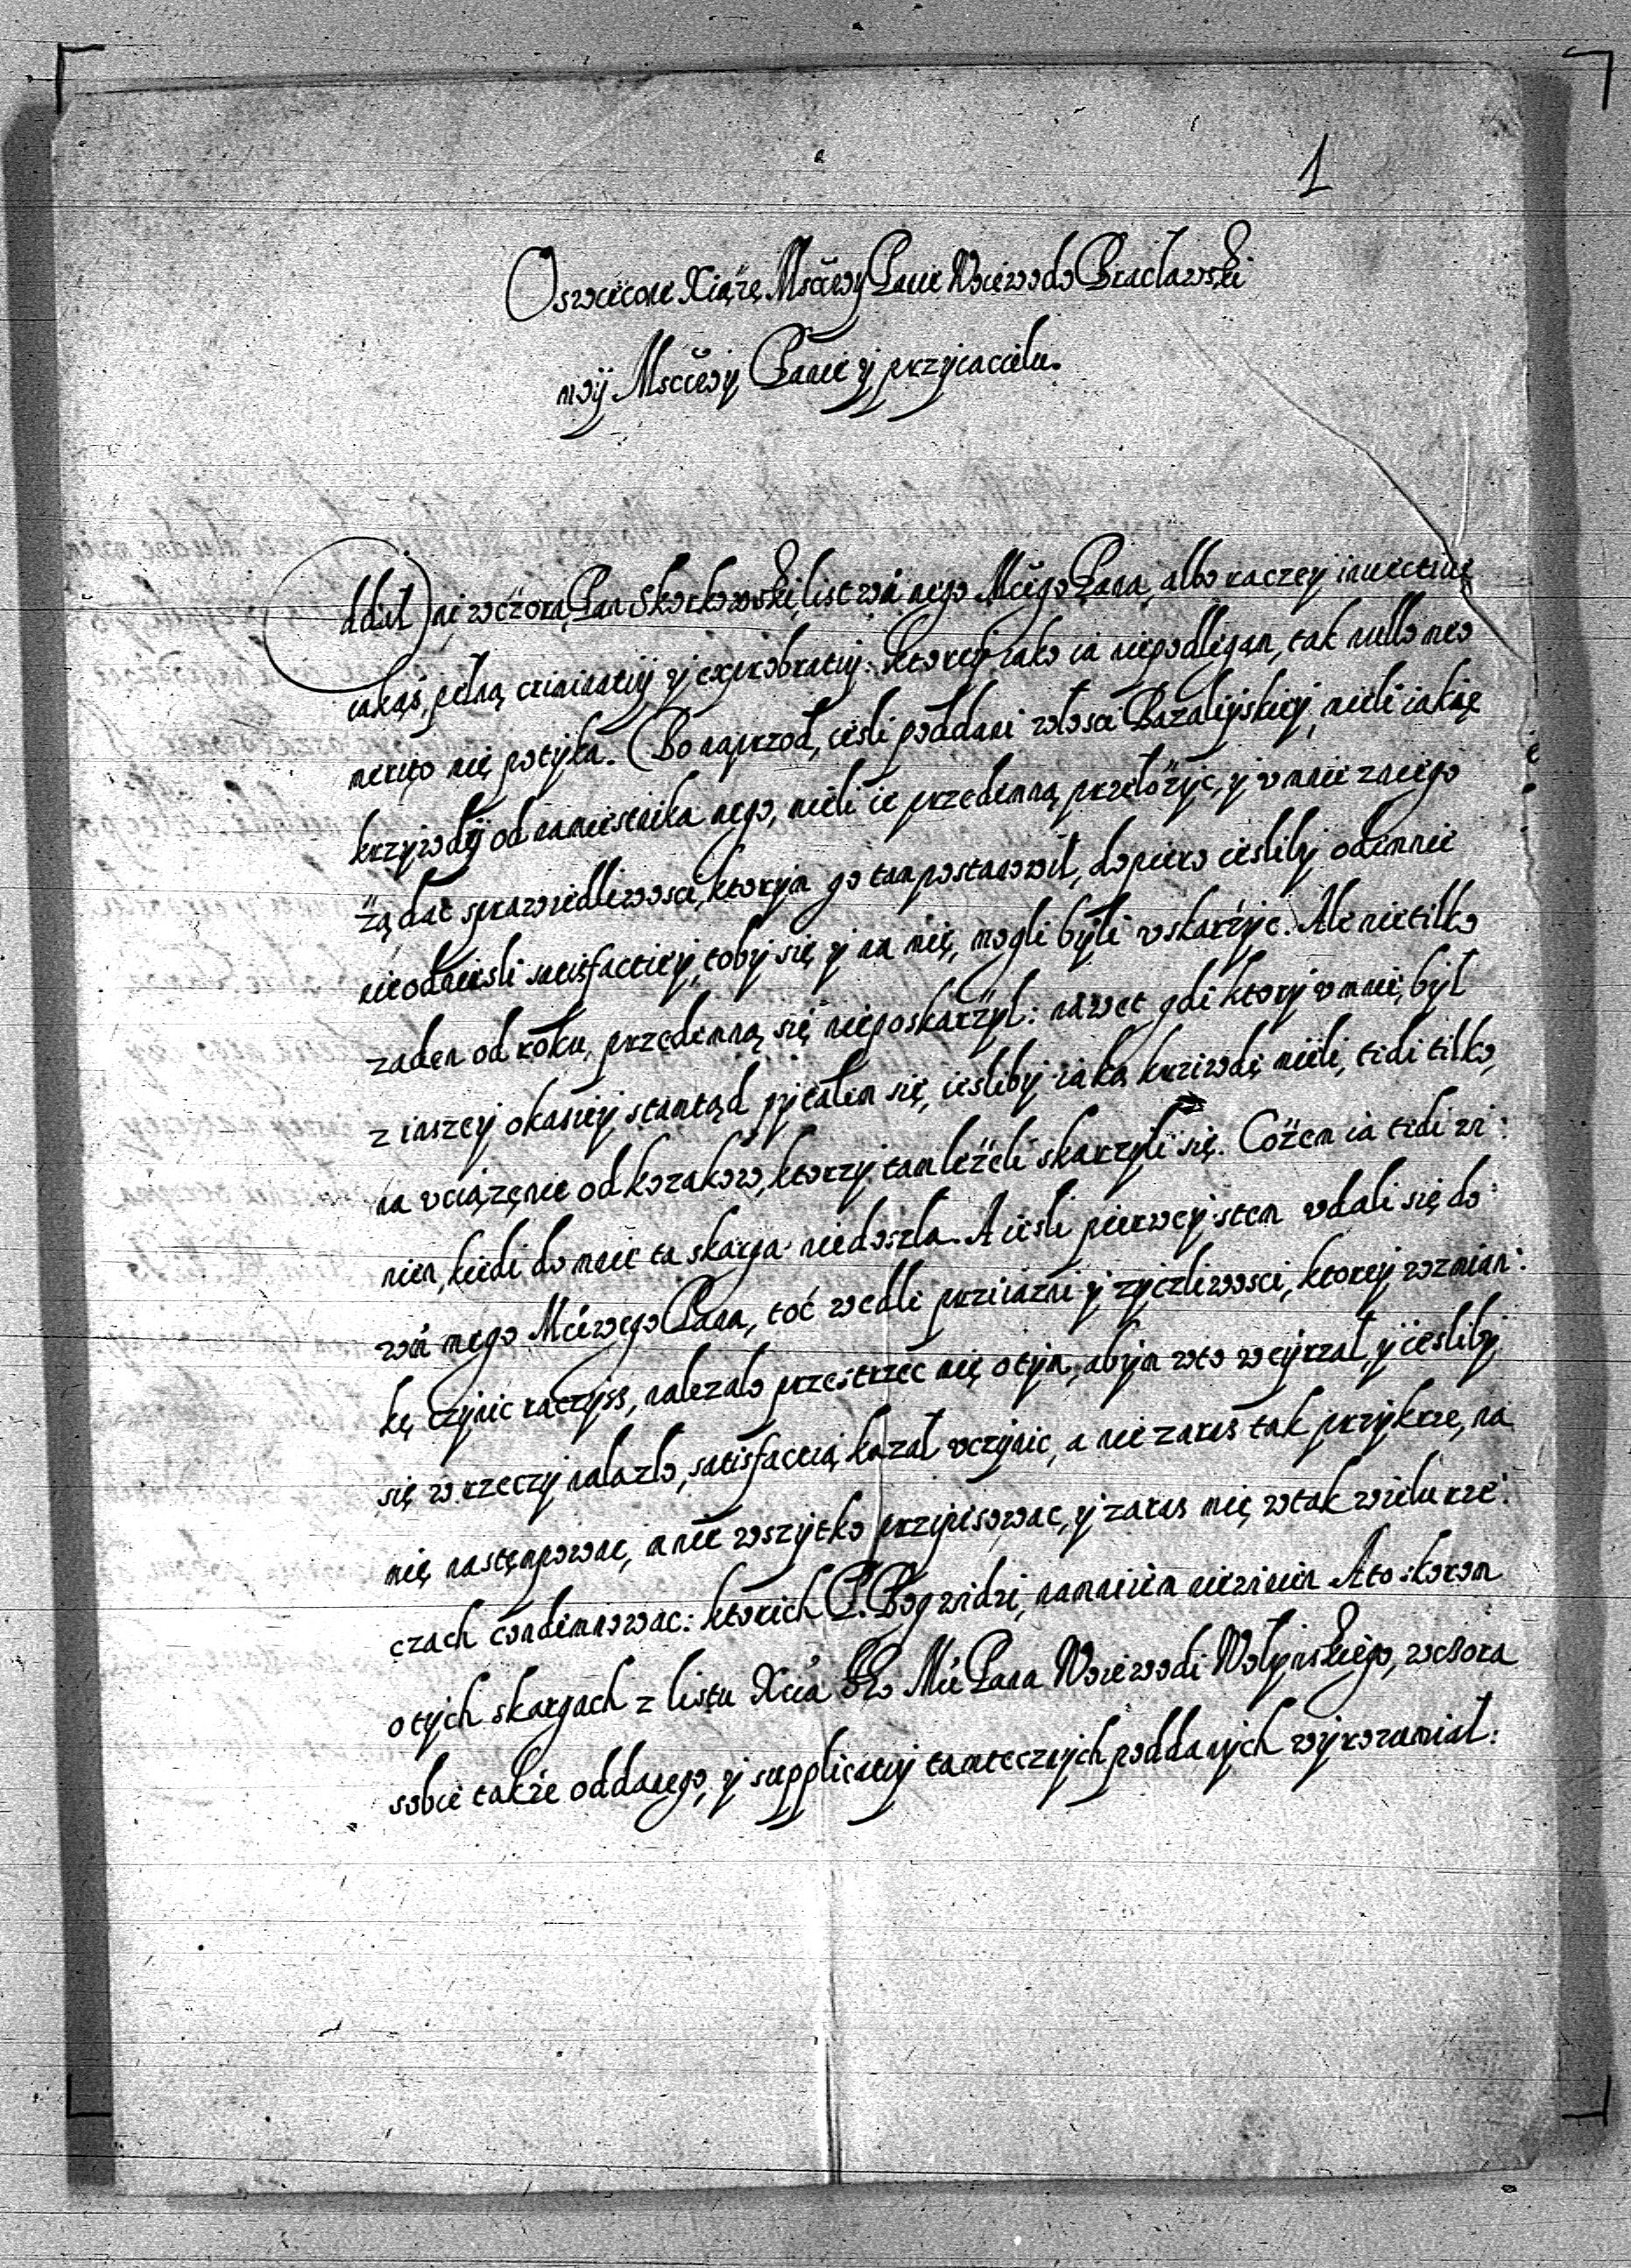 1
Oswiecone Xiąże Mściwy Panie Woiewodo Bracławski
moÿ Mściwy Panie y przyiacielu.
Oddał mi wczora Pan Skorkowski list wm̃ mego Mće͠go Pana, albo raczey inuectiuę
iakąś, pełną criminatiy y exprobratiy: ktorey iako ia niepodlegam, tak nullo meo
merito mię potyka. Bo naprzod, iesli poddani włosci Bazaliyskiey, mieli iakię
krzywdy od namiestnika mego, mieli ie przedemną przełożyc, y v mnie z niego
żądać sprawiedliwosci, ktorym go tam postanowił, dopiero iesliby odemnie
nieodniesli satisfactiey, toby się y na mię, mogli byli vskarżyc. Ale nietilko
zaden od roku, przedemną się nieposkarżył: nawet gdi ktory v mnie, był
z inszey okasiey stamtąd pytałem się, iesliby iaką krziwdę mieli, tedi tilko,
na vciążęnie od kozakow, ktorzy tam leżeli skarżyli się. Cożem ia tedi wi:
nien, kiedi do mnie ta skarga niedoszła. A iesli pierwey stem vdali się do
wm̃ mego Mćiwego Pana, toć wedle przyiazni y zyczliwosci, ktorey wzmian:
kę czynic raczysz, nalezało przestrzec mię o tym, abym w to weyrzał, y iesliby
się w rzeczy nalazło, satisfactią kazał vczynic, a nie zaras tak przykrze, na
mię nastęmpowac, mnie wszytko przypisowac, y zaras mię w tak wielu rze:
czach condemnowac: ktorich P. Bog widzi, namnieiem niewinien A to skorom
o tych skargach z listu Xcia Je͠o Mći Pana Woiewodi Wołynskiego, wczora
sobie także oddanego, y supplicatiy tamtecznych poddanych wyrozumiał: